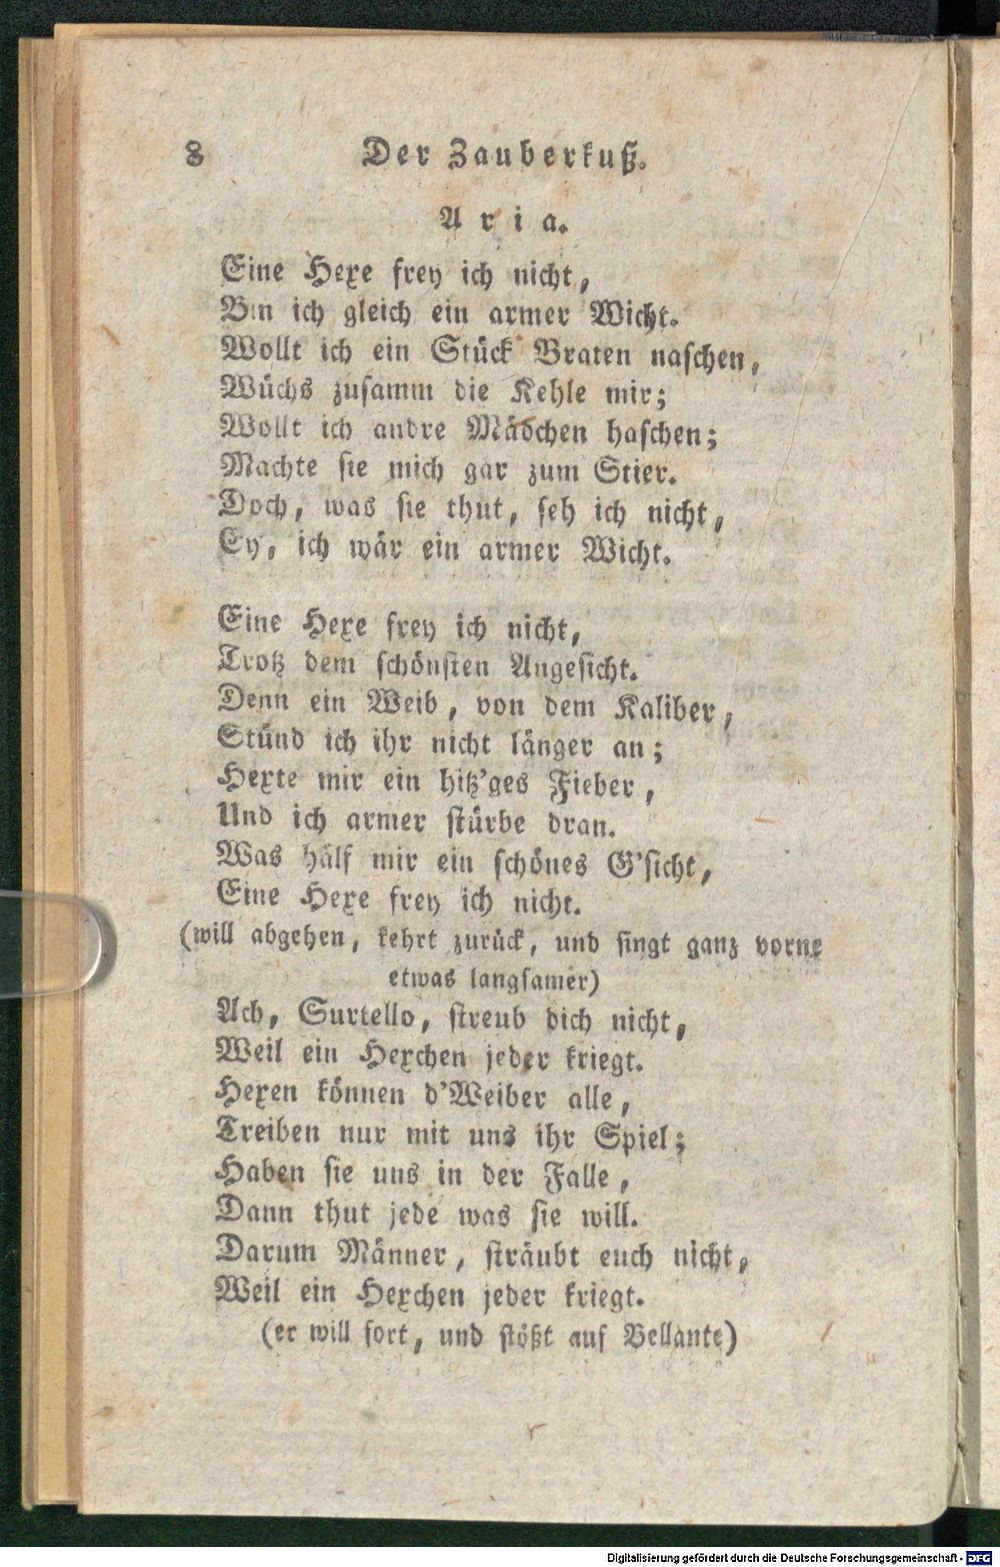 8 Der Zauberkuß.
Aria.
Eine Hexe frey ich nicht,
Bin ich gleich ein armer Wicht.
Wollt ich ein Stück Braten naschen,
Wüchs zusamm die Kehle mir;
Wollt ich andre Mädchen haschen;
Machte sie mich gar zum Stier.
Doch, was sie thut, seh ich nicht,
Ey, ich wär ein armer Wicht.
Eine Hexe frey ich nicht,
Trotz dem schönsten Angesicht.
Denn ein Weib, von dem Kaliber,
Stünd ich ihr nicht länger an;
Hexte mir ein hitz'ges Fieber,
Und ich armer stürbe dran.
Was hälf mir ein schönes G'sicht,
Eine Hexe frey ich nicht.
(will abgehen, kehrt zurück, und singt ganz vorne
etwas langsamer)
Ach, Surtello, streub dich nicht,
Weil ein Hexchen jeder kriegt.
Hexen können d'Weiber alle,
Treiben nur mit uns ihr Spiel;
Haben sie uns in der Falle,
Dann thut jede was sie will.
Darum Männer, sträubt euch nicht,
Weil ein Hexchen jeder kriegt.
(er will fort, und stößt auf Bellante)
Digitalisierung gefördert durch die Deutsche Forschungsgemeinschaft - DFG